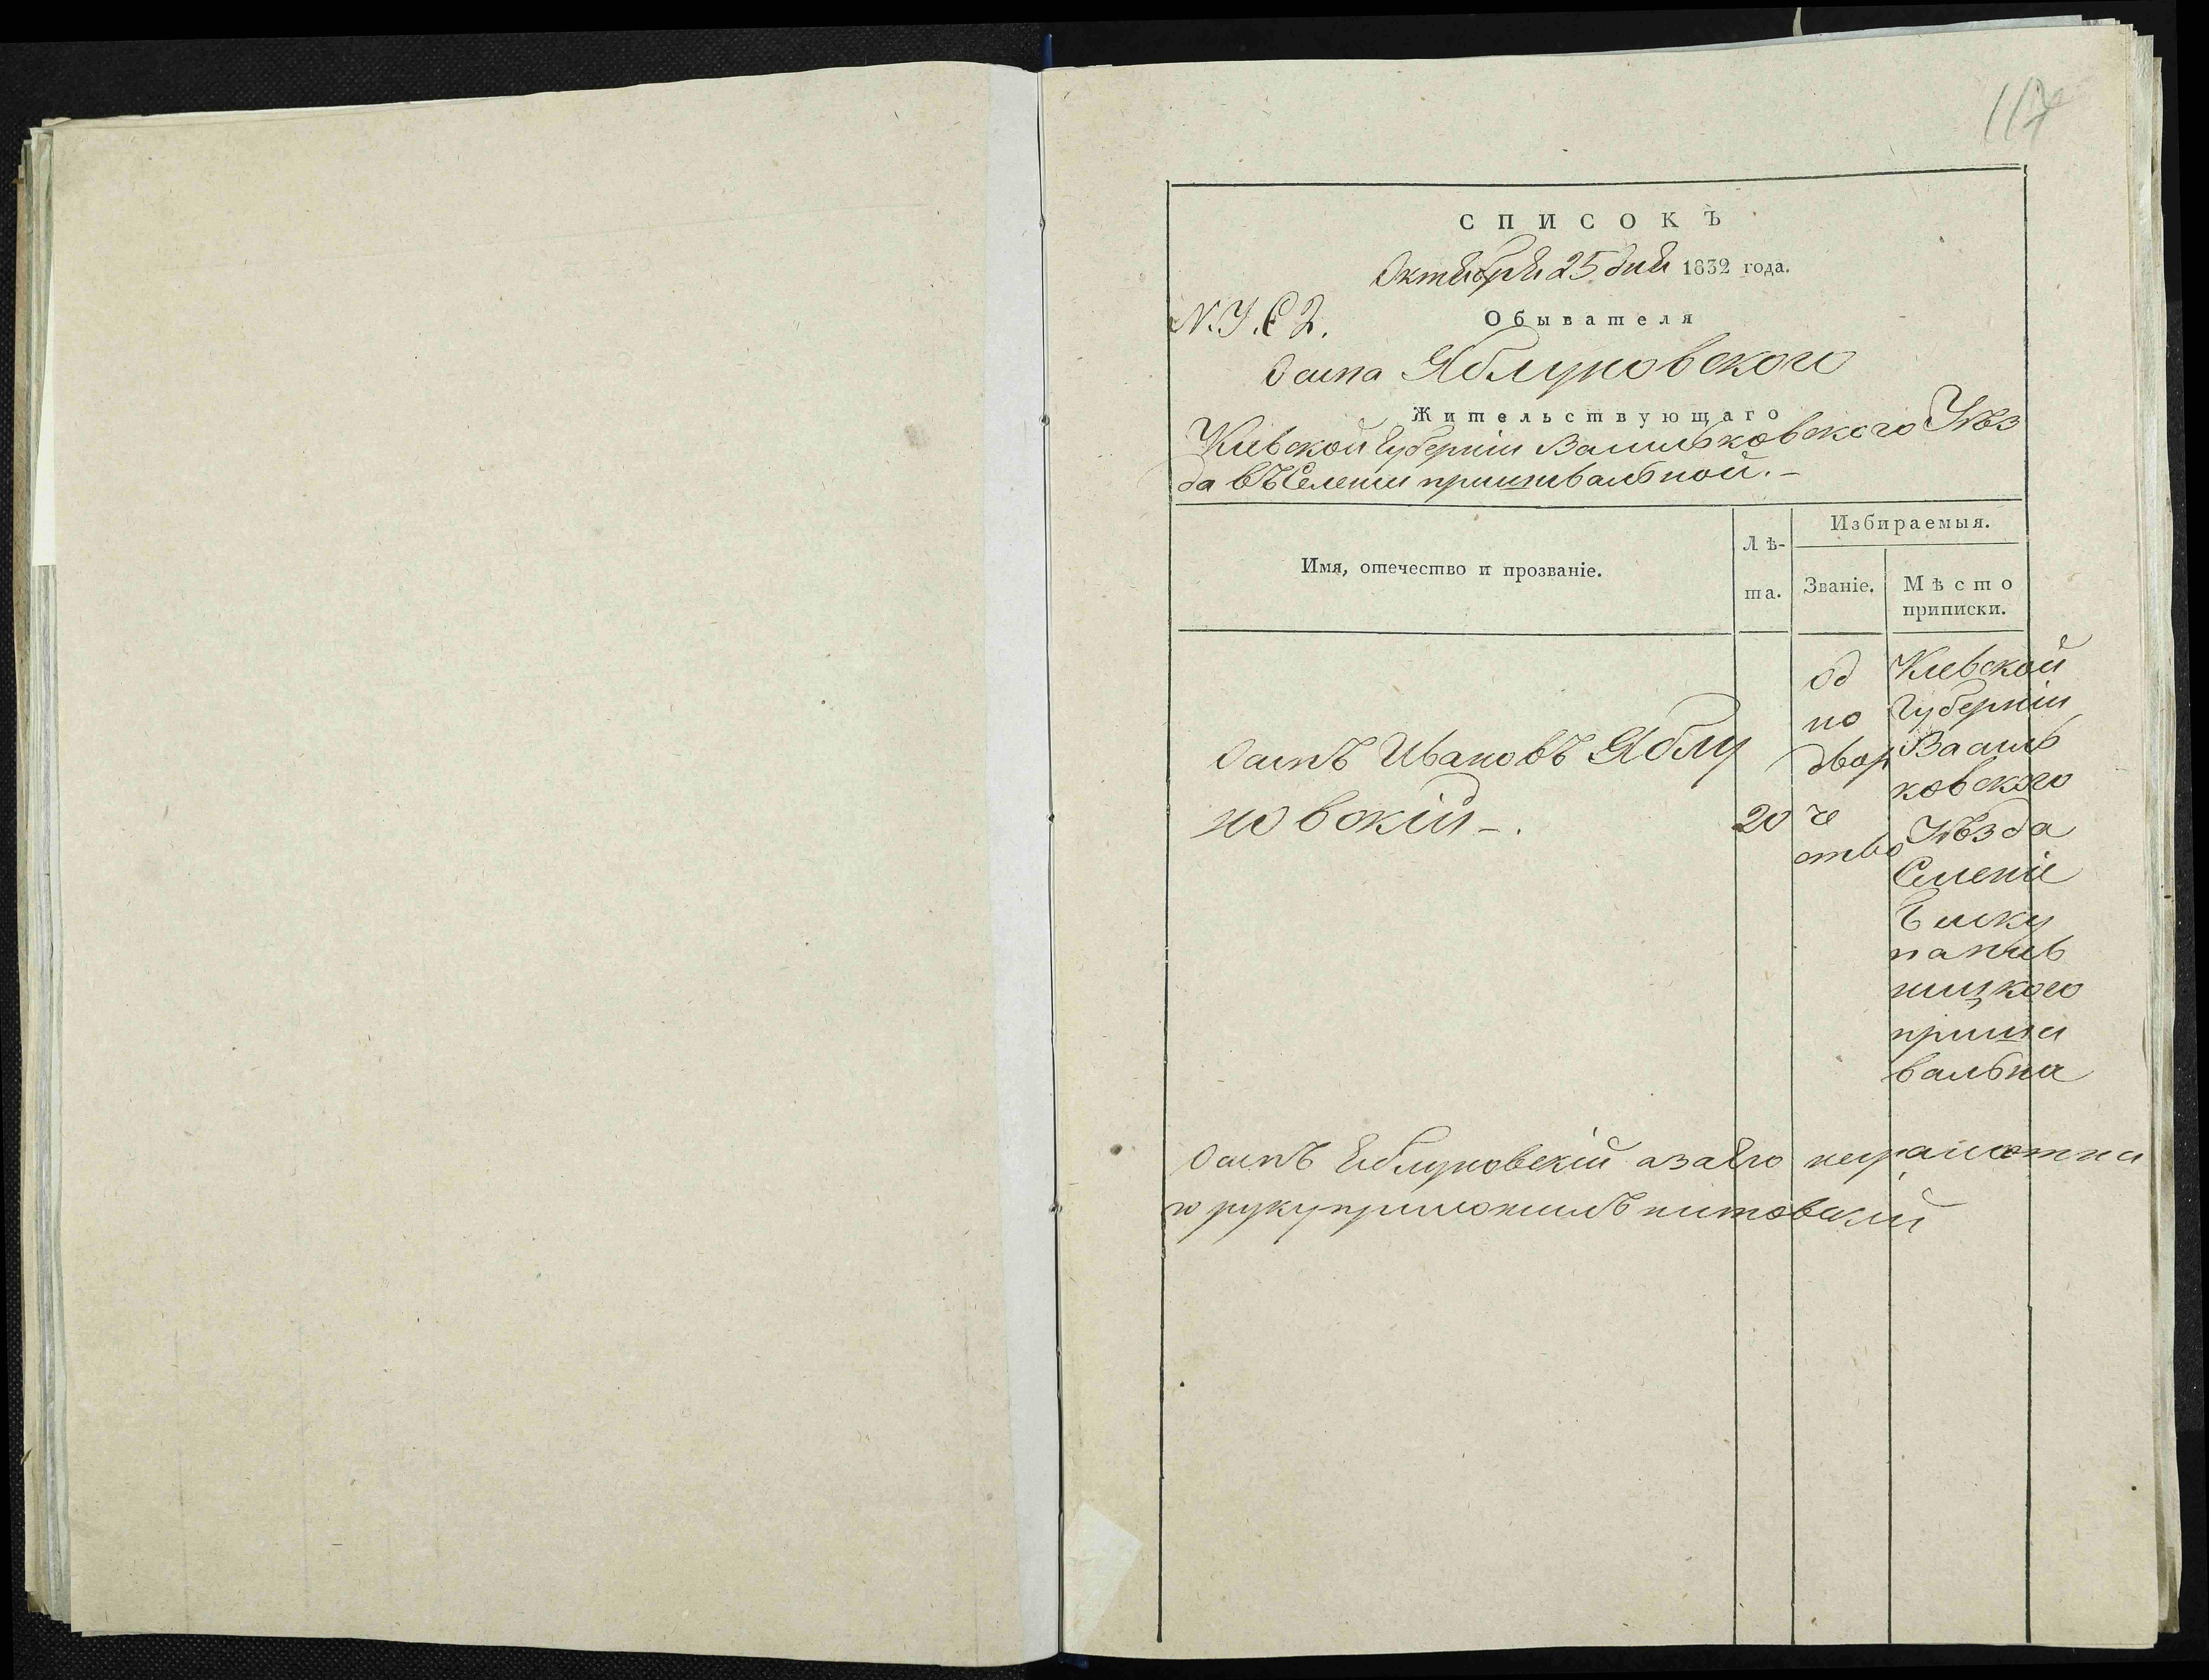 117
СПИСОКЪ
Октября 25 дня 1832 года.
Обывателя
Осипа Яблуновского
Жительствующаго
Киевской Губерніи Васильковского Уѣз
да въ Селении пришивальной.-
Имя, отечество и прозваніе.
Лѣ-
та.
Избираемыя.
Званіе.
Мѣсто
приписки.
Осипъ Ивановъ Яблу
новскій-.
20
од
но
двор
че
ство
Киевской
Губерніи
Василь
ковского
Уѣзда
Селеніе
пришы
вальна
Осипъ Еблуновскій азаего неграмотна
го руку приложилъ